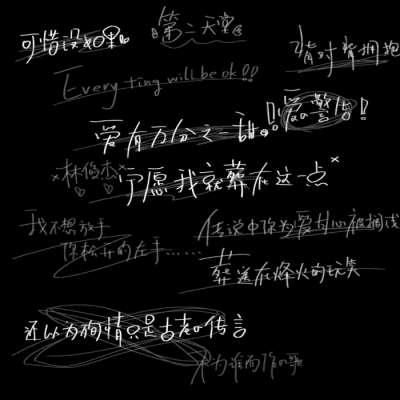 可惜没如果
第二天堂
背对背拥抱
Every ting will be ok!!
爱有万分之一甜。!!
爱警告!!
×林俊杰×
宁愿我就葬在这一点×
我不想放手
你松开的左手......
传说中你为爱甘心被搁浅
葬送在烽火的玩笑
还以为殉情只是古老传言
不为谁而作的歌